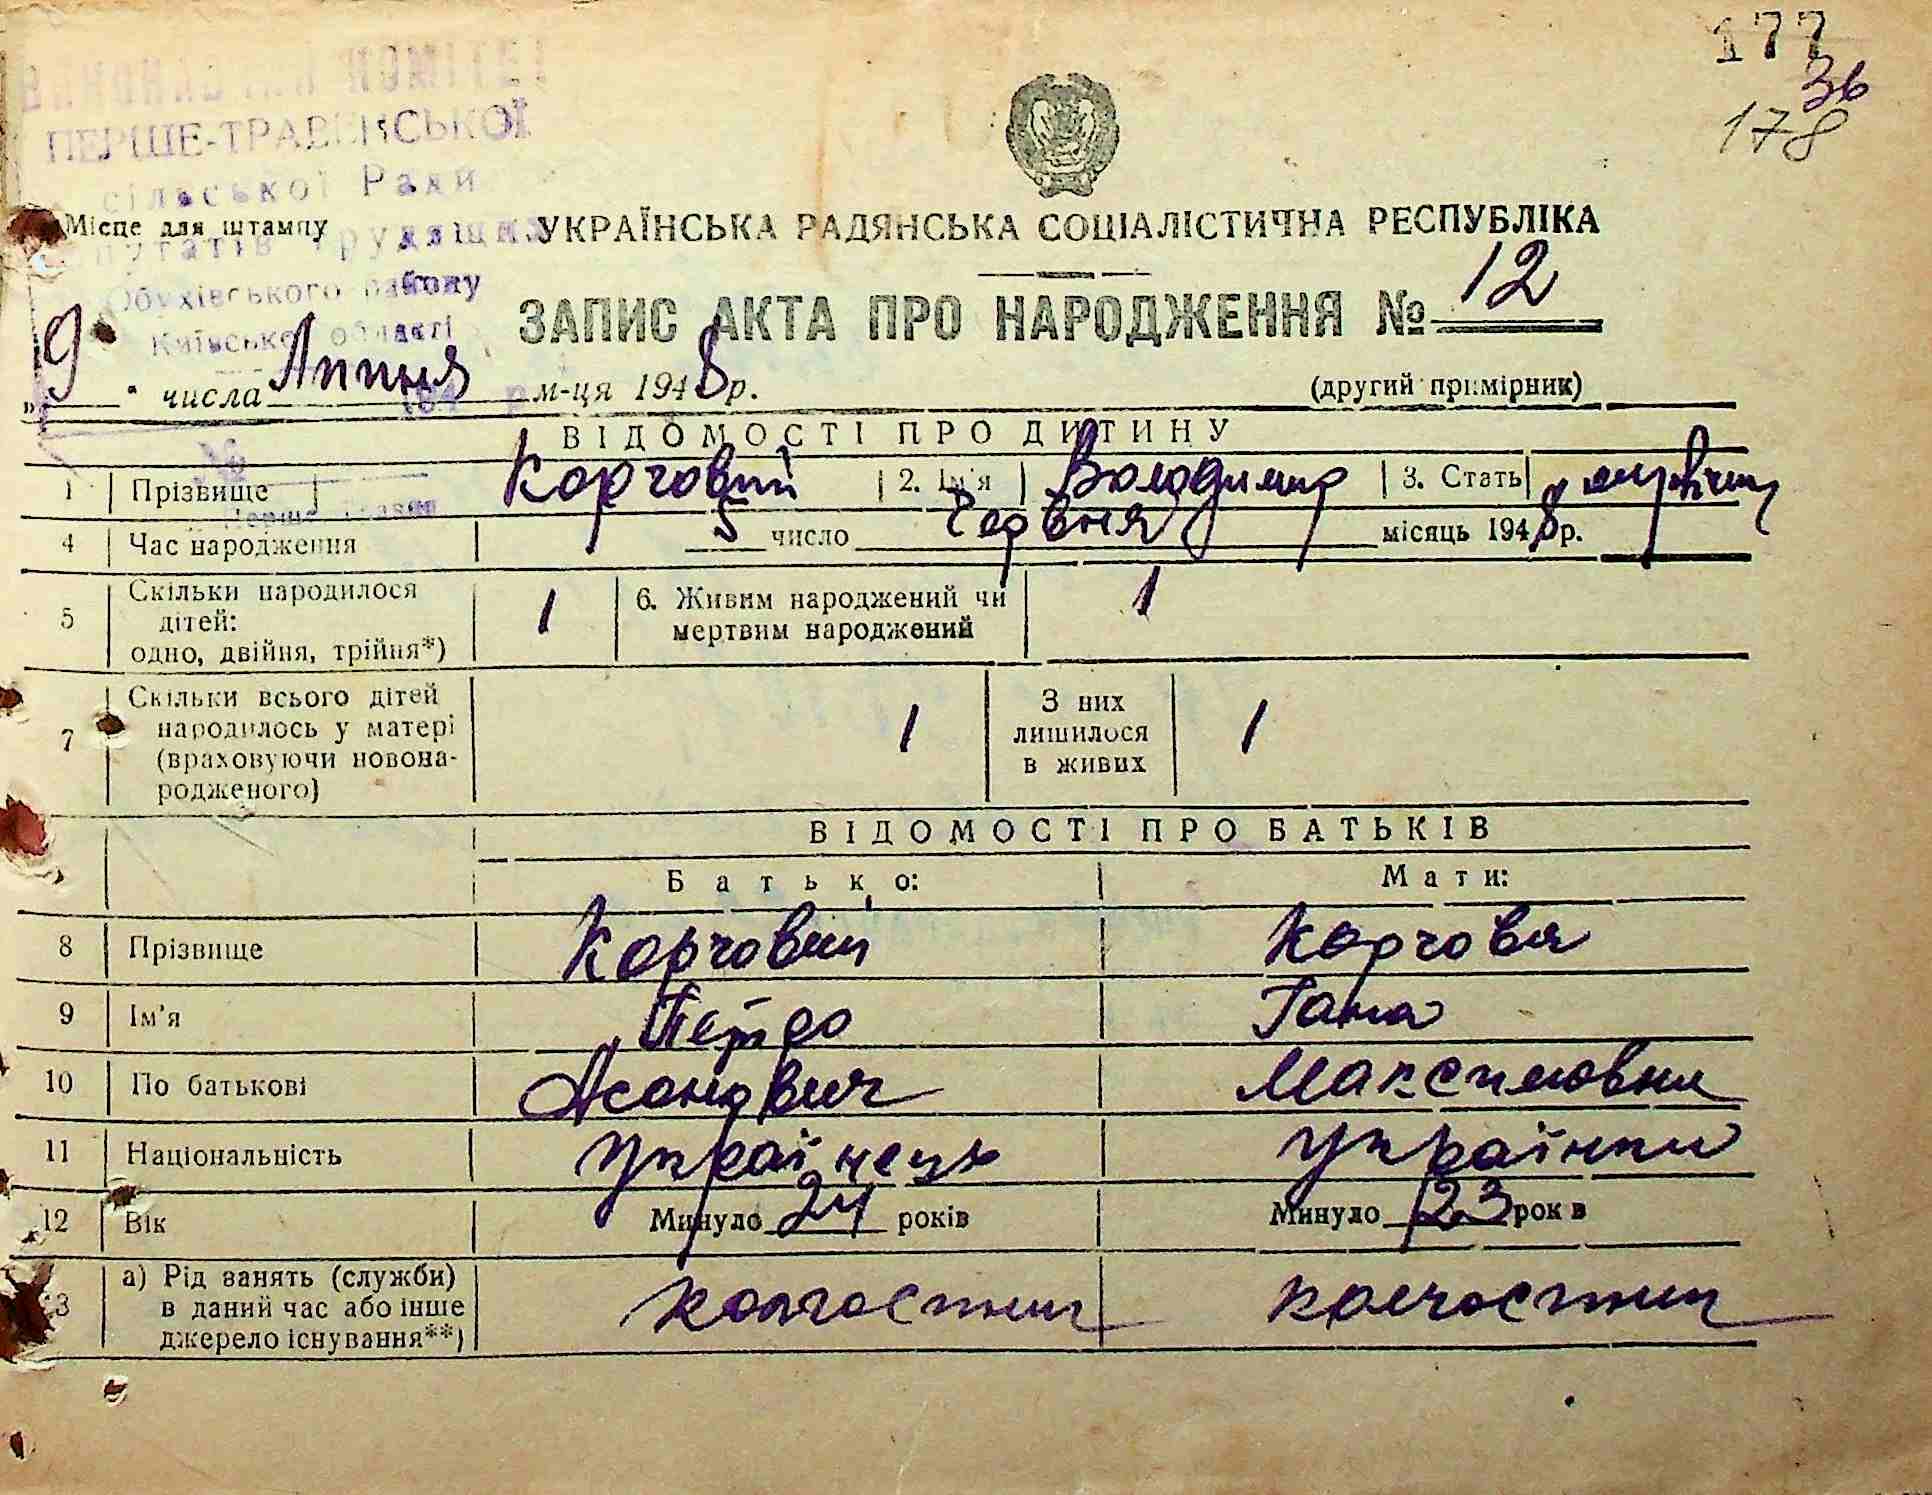 177
36
178
ВИКОНАВЧИЙ КОМІТЕТ
ПЕРШЕ-ТРАВЕНСЬКОЇ
сільської Ради
Місце для штампу
депутатів трудящих
Обухівського району
Київської області
УКРАЇНСЬКА РАДЯНСЬКА СОЦІАЛІСТИЧНА РЕСПУБЛІКА
ЗАПИС АКТА ПРО НАРОДЖЕННЯ № 12
„9" числа Липня м-ця 1948 р.
(другий примірник)
194 р
№
ВІДОМОСТІ ПРО ДИТИНУ
1 Прізвище Корчовий 2. Ім'я Володимир 3. Стать
4 Час народження 5 число Червня місяць 1948 р.
5 Скільки народилося дітей: одно, двійня, трійня*) 1 6. Живим народжений чи мертвим народжений 1
7 Скільки всього дітей народилось у матері (враховуючи новонародженого) 1 З них лишилося в живих 1
ВІДОМОСТІ ПРО БАТЬКІВ
Батько: Мати:
8 Прізвище Корчовий Корчова
9 Ім'я Петро Гана
10 По батькові Максимовна
11 Національність Українець Українка
12 Вік Минуло 24 років Минуло 23 рок в
13 а) Рід занять (служби) в даний час або інше джерело існування**) колгоспник колгоспниц